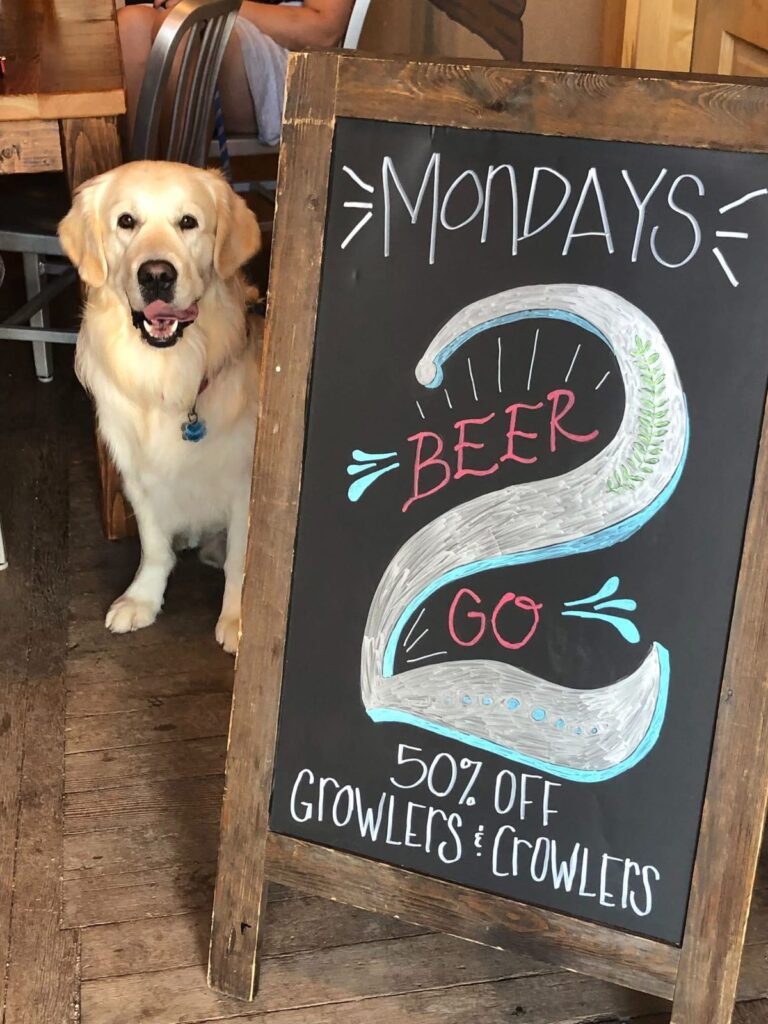 MONDAYS
BEER
2
GO
50% OFF
GROWLERS & CROWLERS